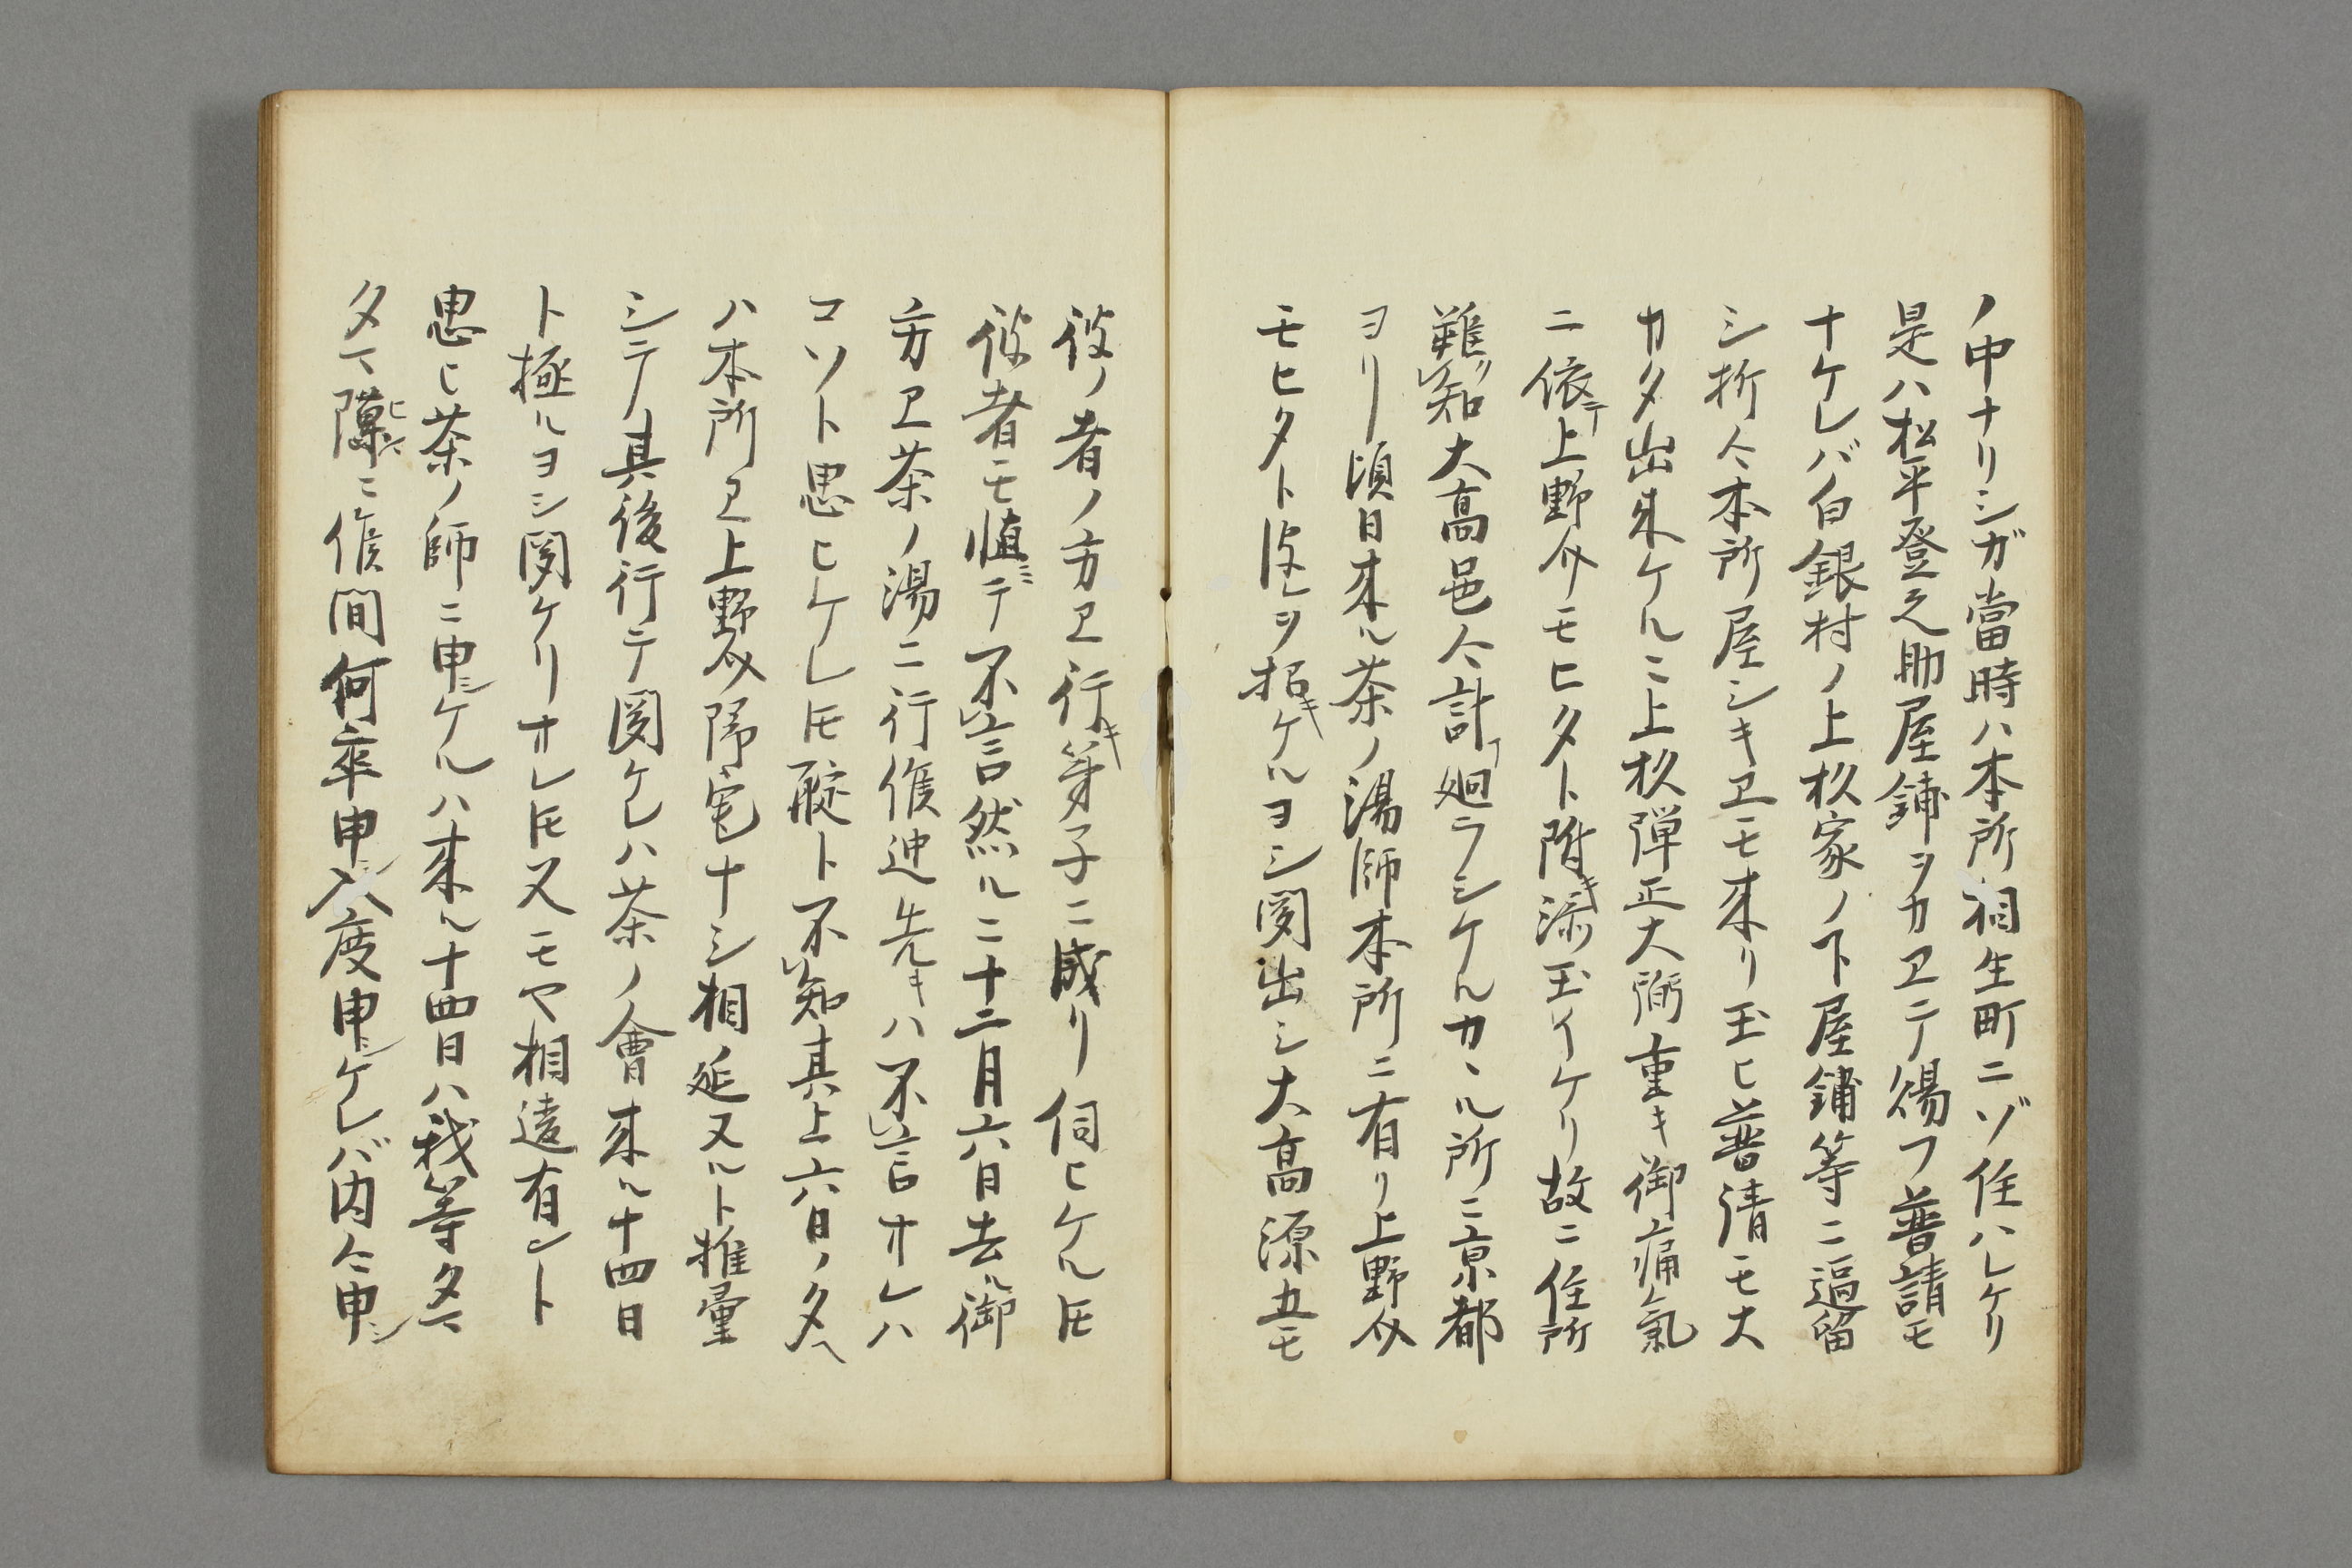 ノ中ナリシガ當時ハ本所相生町ニゾ住ハレケリ
是ハ松平登之助屋鋪ヲカヱテ得フ普請モ
ナケレバ白銀村ノ上杦家ノ下屋鋪等ニ逗留
シ折々本所屋シキヱモ来リ玉ヒ普請モ大
カタ出来ケルニ上杦弾正大弼重キ御痛氣
ニ依テ上野介モヒタト附キ添玉イケリ故ニ住所
難シ知リ大髙邑々計リ廻ラシケルカヽル所ニ京都
ヨリ頃日来ル茶ノ湯師本所ニ有リ上野介
モヒタト彼ヲ招キケルヨシ聞出シ大髙源五モ
彼ノ者ノ方ヱ行キ第子ニ成リ伺ヒケル𪜈
彼者モ愼ミテ不言然ルニ十二月六日去ル御
方ヱ茶ノ湯ニ行候迚先キハ不言オレハ
コソト思ヒケレ𪜈聢ト不知其上六日ノ夕ヘ
ハ本所ヱ上野介帰宅ナシ相延又ルト推量
シテ其後行テ聞ケレハ茶ノ會来ル十四日
ト極ルヨシ聞ケリオレ𪜈又モヤ相違有ント
思ヒ茶ノ師ニ申シケルハ来ル十四日ハ我等タマ
タマ隙ヒマニ候間何卒申シ入度申シケレバ内々申シ